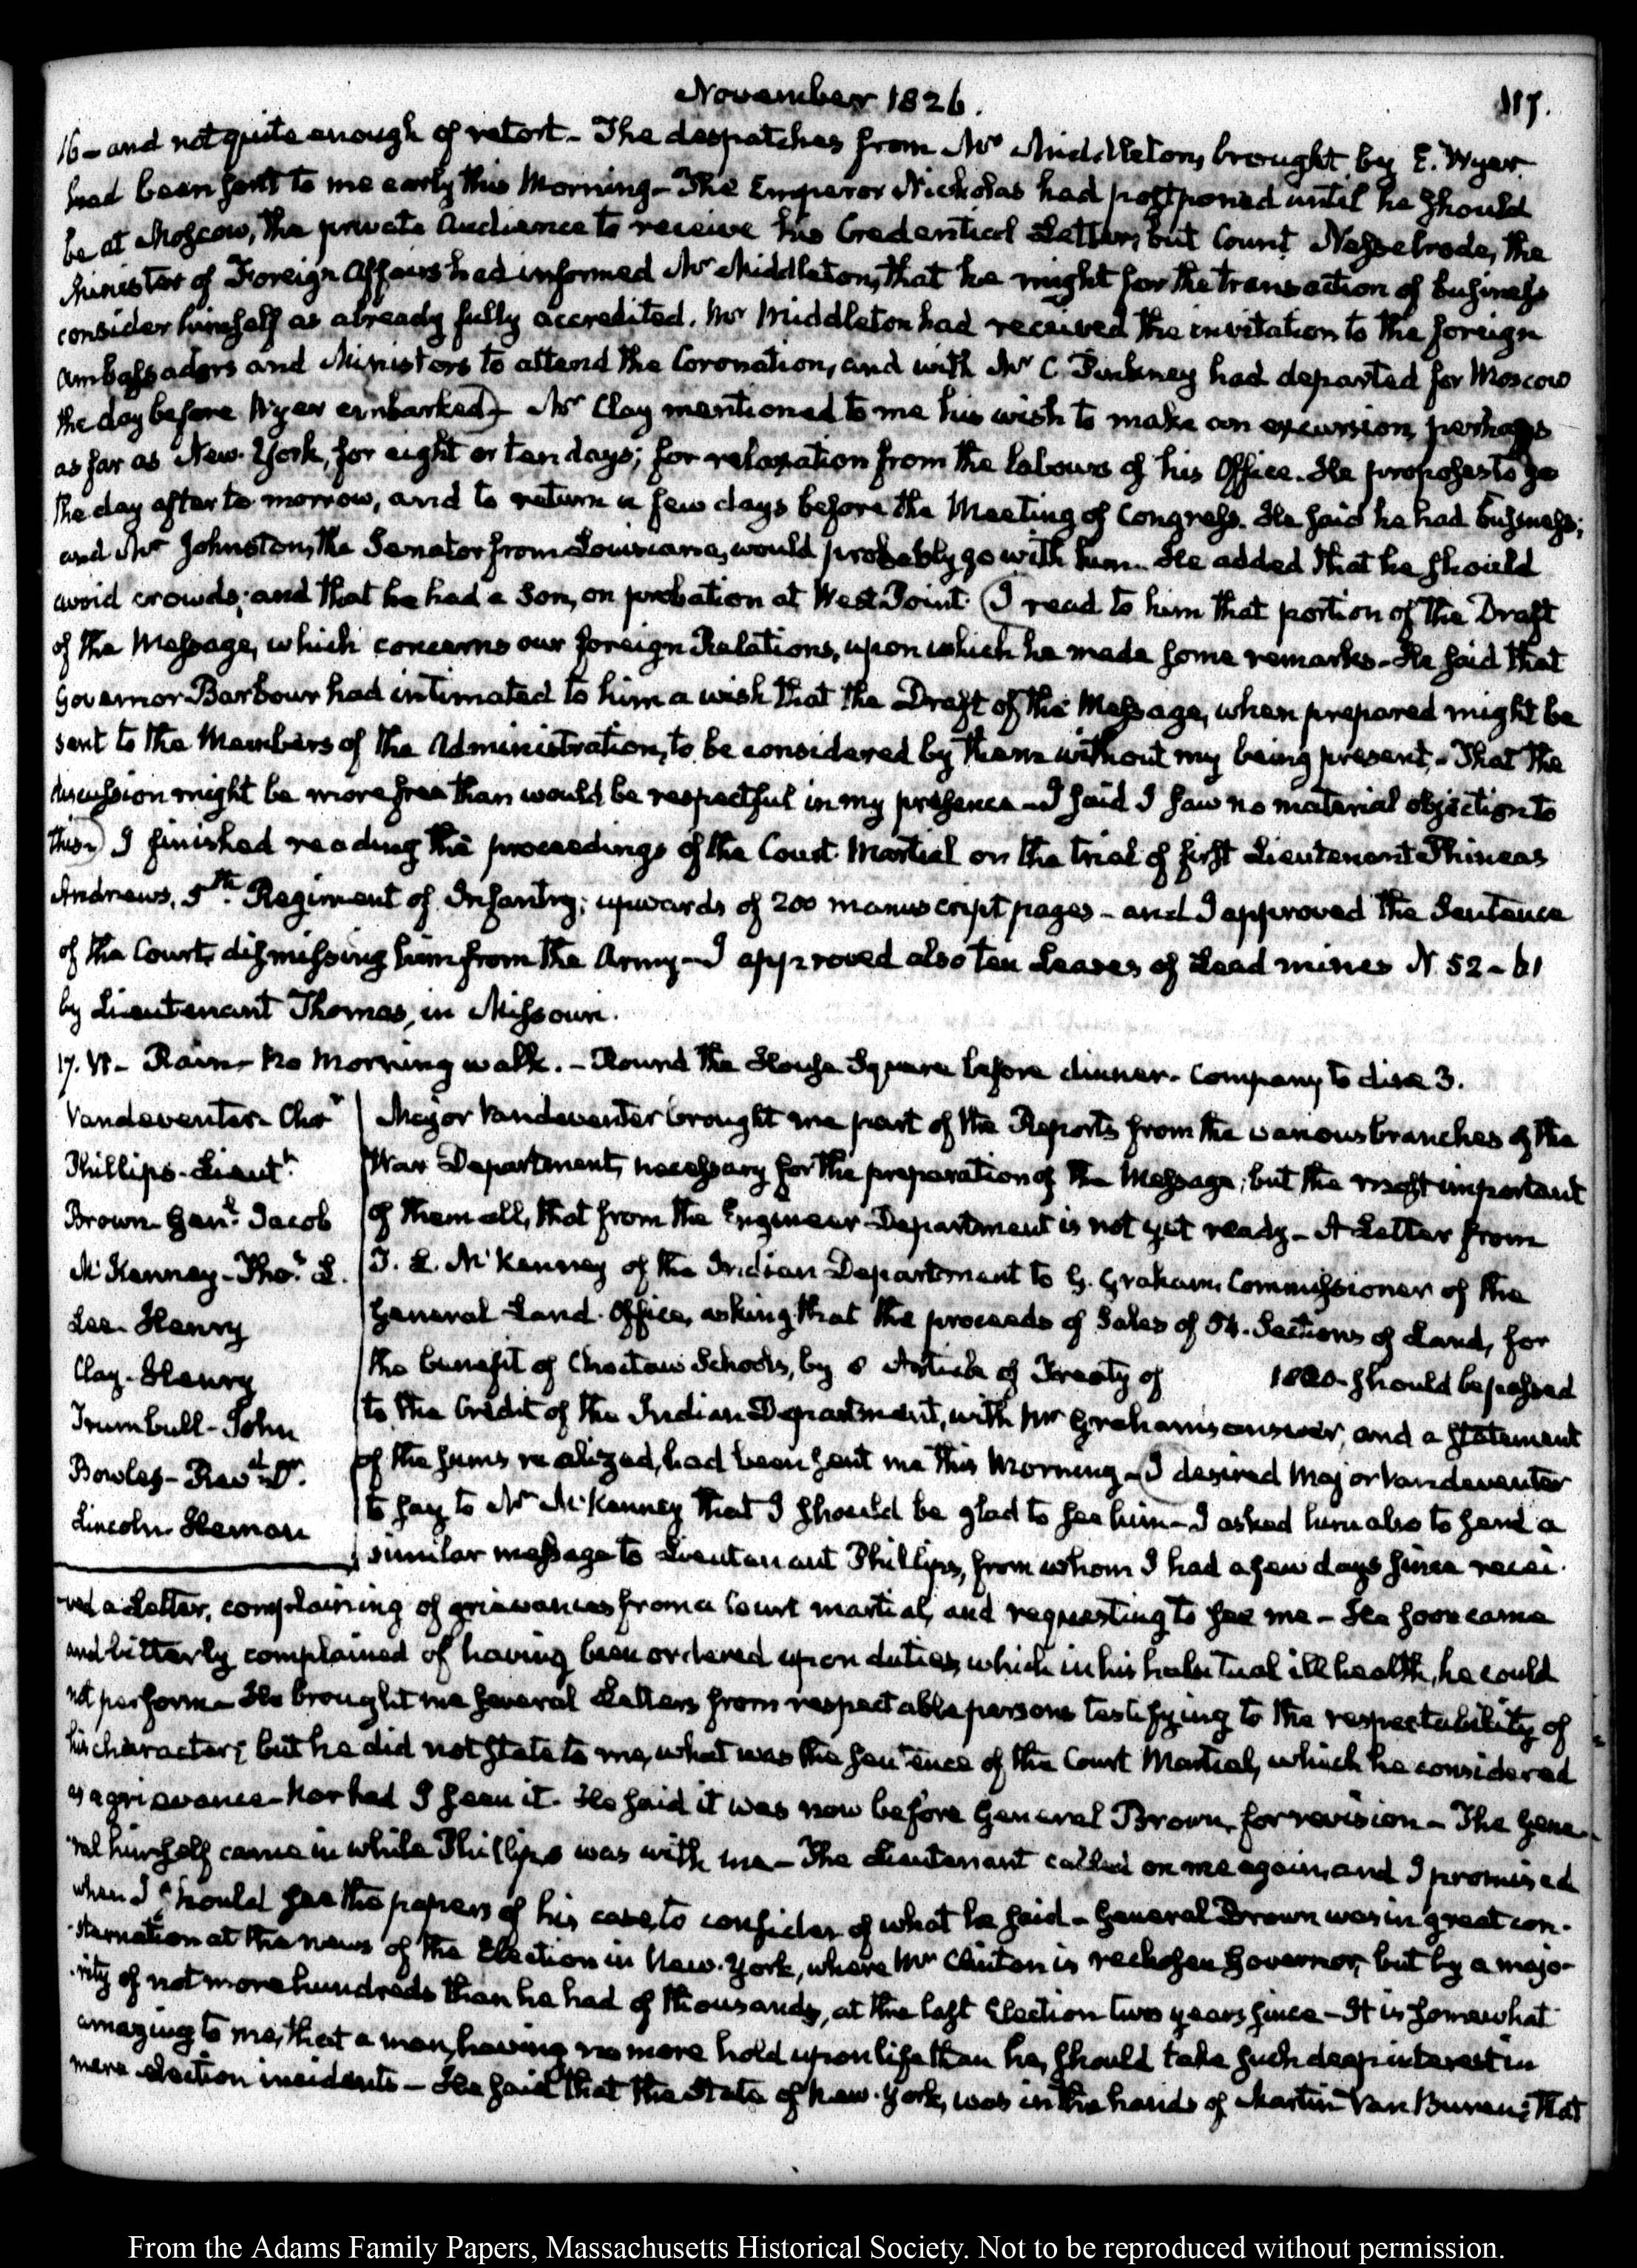 November 1826.
117.
16 – and not quite enough of retort – The despatches from Mr Middleton, brought by E. Wyer
had been sent to me early this Morning – The Emperor Nicholas had postponed until he should
be at Moscow, the private Audience to receive his Credential Letter, but Count Nesselrode, the
Minister of Foreign Affairs had informed Mr Middleton, that he might for the transaction of business
consider himself as already fully accredited. Mr Middleton had received the invitation to the foreign
Ambassadors and Ministers to attend the Coronation, and with Mr C. Pinkney had departed for Moscow
the day before Wyer embarked) – Mr Clay mentioned to me his wish to make an excursion, perhaps
as far as New-York, for eight or ten days; for relaxation from the labours of his Office. He proposes to go
the day after to morrow, and to return a few days before the Meeting of Congress. He said he had business;
and Mr Johnston, the Senator from Louisiana, would probably go with him. He added that he should
avoid crowds; and that he had a Son, on probation at West Point. (I read to him that portion of the Draft
of the Message, which concerns our foreign Relations, upon which he made some remarks – He said that
Governor Barbour had intimated to him a wish that the Draft of the Message, when prepared might be
sent to the Members of the Administration, to be considered by them without my being present, – That the
discussion might be more free than would be respectful in my presence – I said I saw no material objection to
this –) I finished reading the proceedings of the Court-Martial on the trial of first Lieutenant Phineas
Andrews, 5th. Regiment of Infantry; upwards of 200 manuscript pages – and I approved the Sentence
of the Court, dismissing him from the Army – I approved also ten Leases of Lead mines N. 52 – 61
by Lieutenant Thomas, in Missouri.
17. VI – Rain – No Morning walk. – Round the House Square before dinner – Company to dine 3.
Vandeventer – Chr
Phillips – Lieutt.
Brown – Genl. Jacob
McKenney – Thos. L.
Lee – Henry
Clay – Henry
Trumbull – John
Bowles – Revd. Dr.
Lincoln – Heman
Major Vandeventer brought me part of the Reports from the various branches of the
War Department, necessary for the preparation of the Message; but the most important
of them all, that from the Engineer Department is not yet ready – A Letter from
T. L. McKenney of the Indian Department to G. Graham, Commissioner of the
General Land-Office, asking that the proceeds of Sales of 54. Sections of Land, for
the benefit of Choctaw Schools, by 8 Article of Treaty of 1820 – should be passed
to the Credit of the Indian Department, with Mr Graham's answer, and a statement
of the sums realized, had been sent me this Morning – (I desired Major Vandeventer
to say to Mr McKenney that I should be glad to see him – I asked him also to send a
similar message to Lieutenant Phillips, from whom I had a few days since recei-
-ved a Letter, complaining of grievances from a Court martial, and requesting to see me – He soon came
and bitterly complained of having been ordered upon duties, which in his habitual ill health, he could
not perform – He brought me several Letters from respectable persons testifying to the respectability of
his character; but he did not state to me, what was the sentence of the Court Martial, which he considered
as a grievance – Nor had I seen it. He said it was now before General Brown, for revision – The Gene-
-ral himself came in while Phillips was with me – The Lieutenant called on me again, and I promised
when I should see the papers of his case, to consider of what he said – General Brown was in great con-
-sternation at the news of the Election in New-York, where Mr Clinton is rechosen Governor, but by a majo-
-rity of not more hundreds than he had of thousands, at the last Election two years since – It is somewhat
amazing to me, that a man, having no more hold upon life than he, should take such deep interest in
mere election incidents – He said that the State of New-York, was in the hands of Martin Van Buren; that
From the Adams Family Papers, Massachusetts Historical Society. Not to be reproduced without permission.